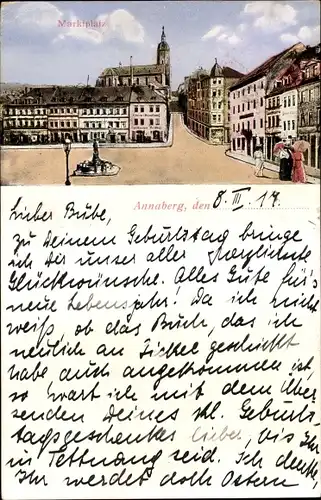 Marktplatz
Annaberg, den 8. III. 14.
Lieber Bube,
zu Deinem Geburtstag bringe
ich Dir unser aller herzlichste
Glückwünsche. Alles Gute für's
neue Lebensjahr! Da ich nicht
weiß, ob das Buch, das ich
neulich an Fickel geschickt
habe auch angekommen ist,
so wart ich mit dem Über
senden Deines kl. Geburts
tagsgeschenkes lieber, bis Ihr
in Tettnang seid. Ich denke,
Ihr werdet doch Ostern